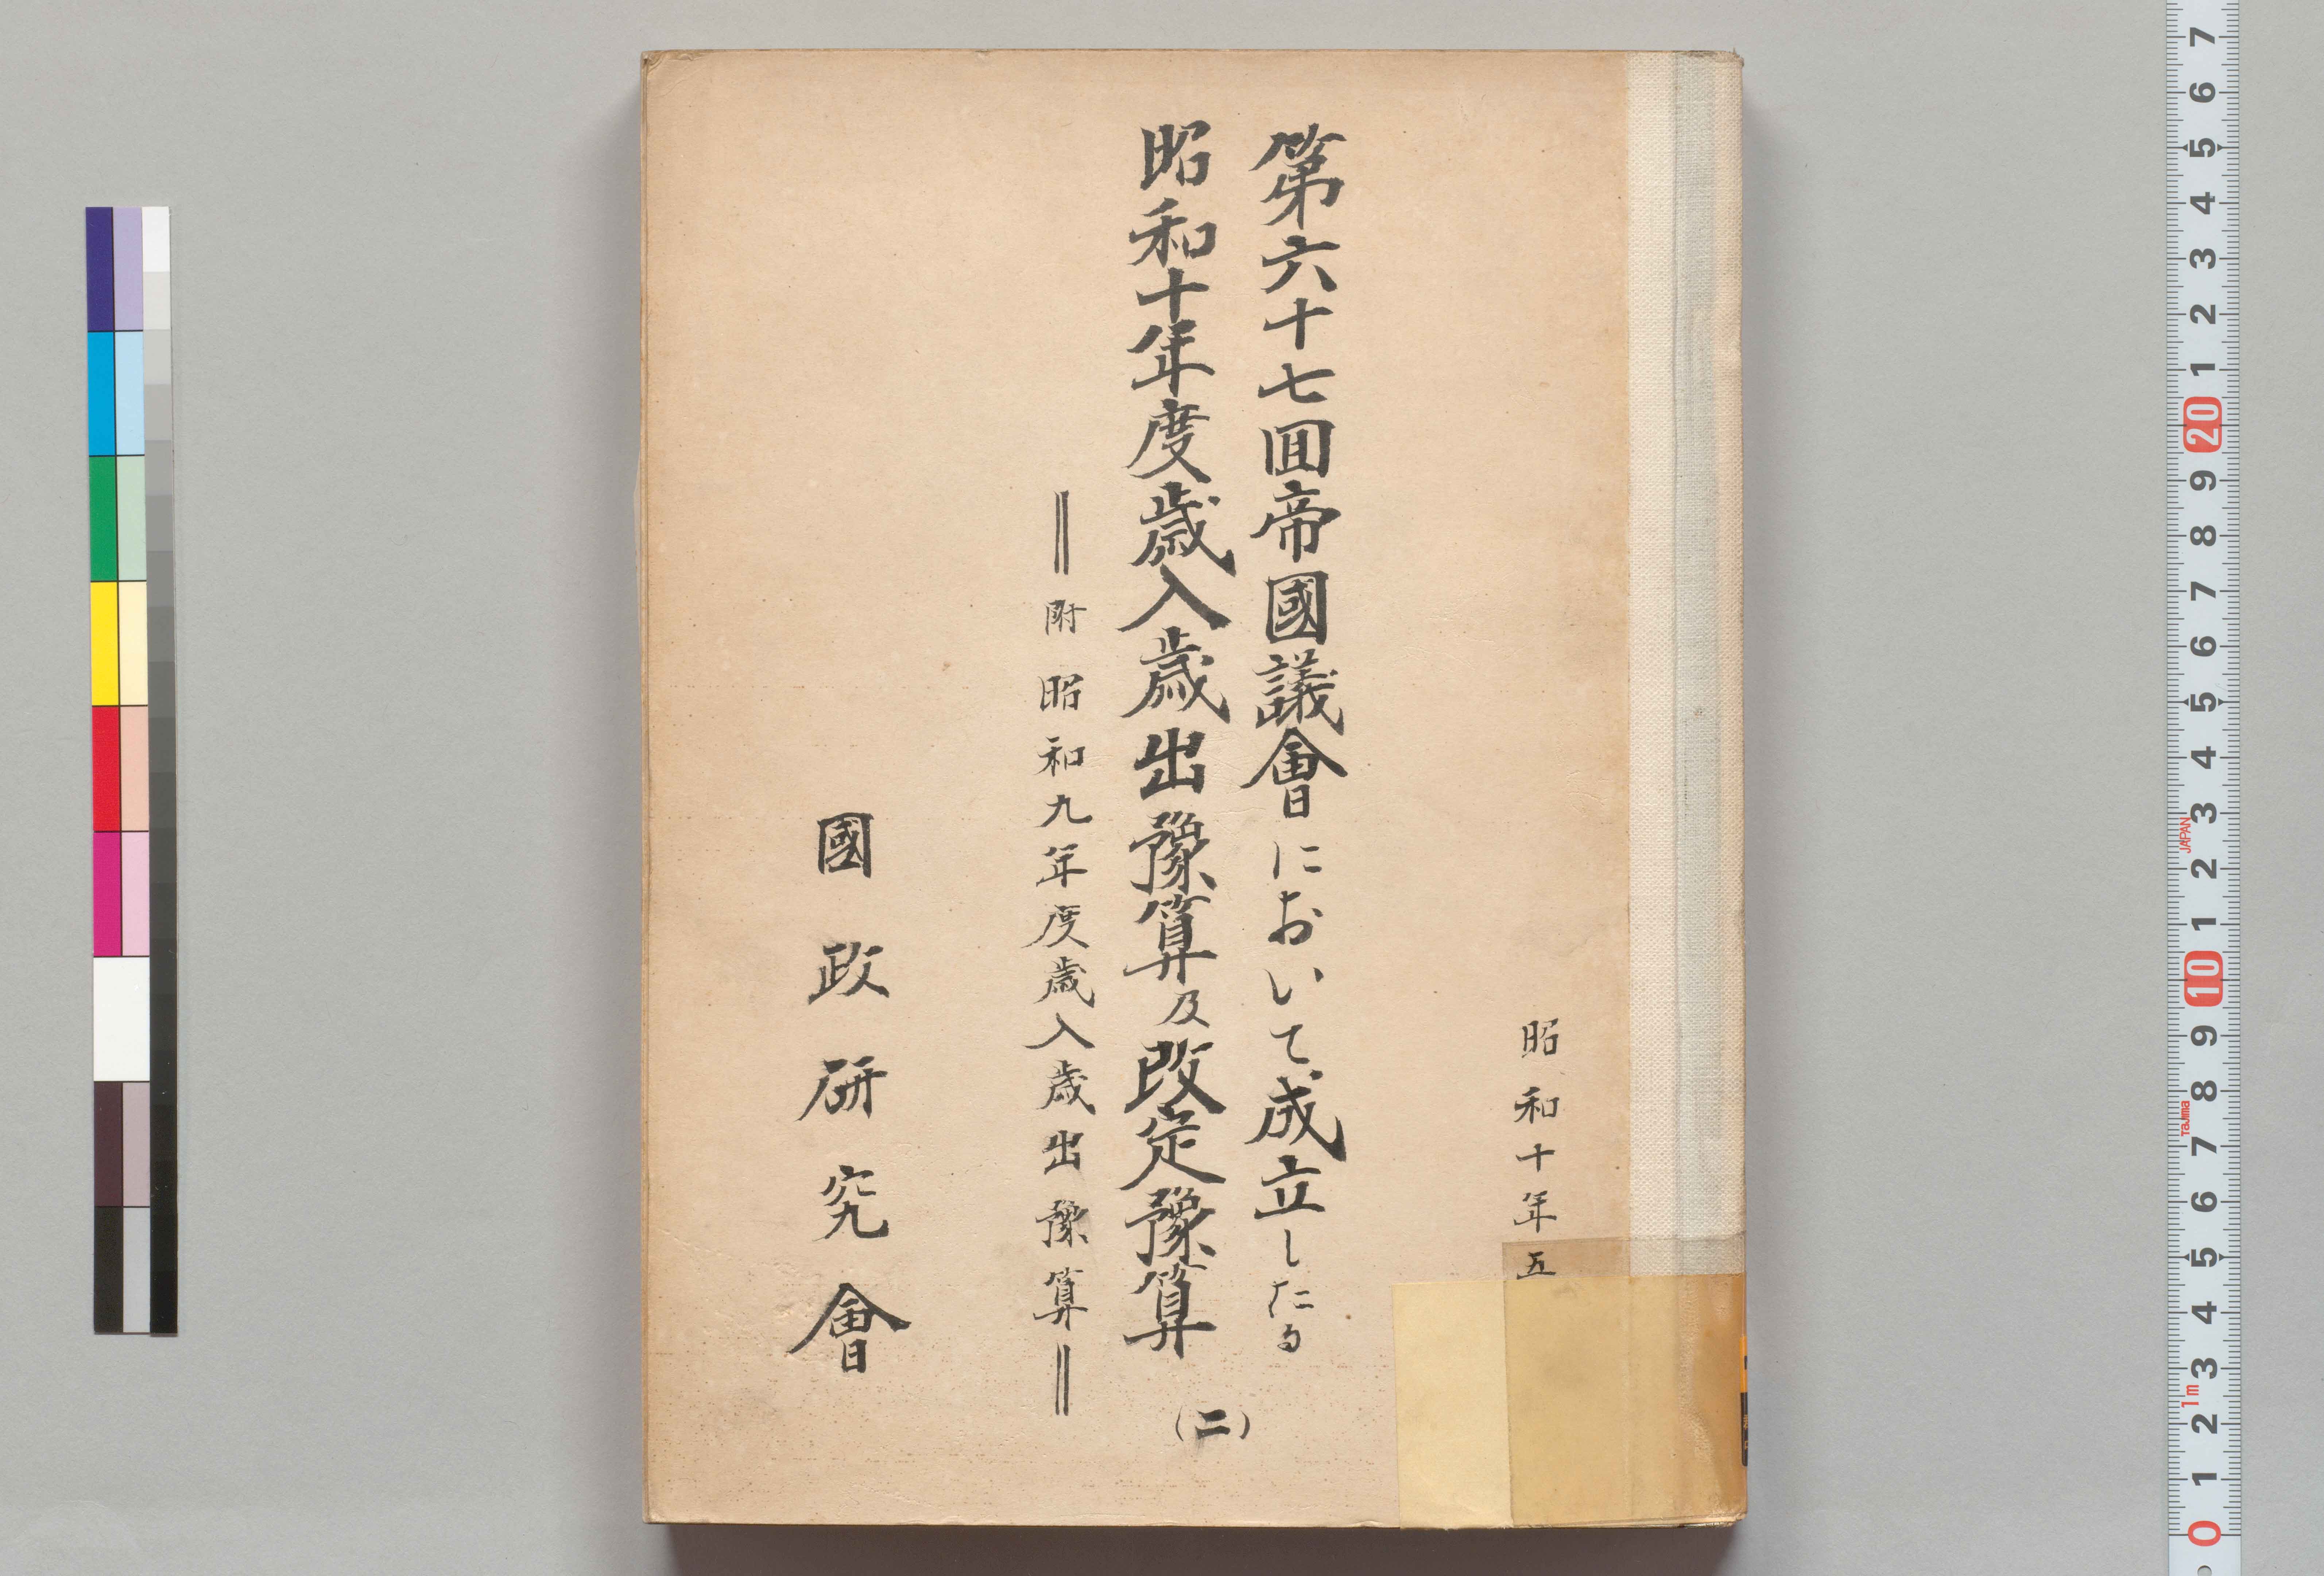 昭和十年五
第六十七囬帝國議會において成立したる
昭和十年度歳入歳出豫算及改定豫算(二)
‖附昭和九年度歳入歳出豫算‖
國政研究會
7
6
5
4
3
2
1
20
9
8
7
6
5
4
3
JAPAN
2
1
10
9
8
Tajima
7
6
5
4
3
1m
2
1
0